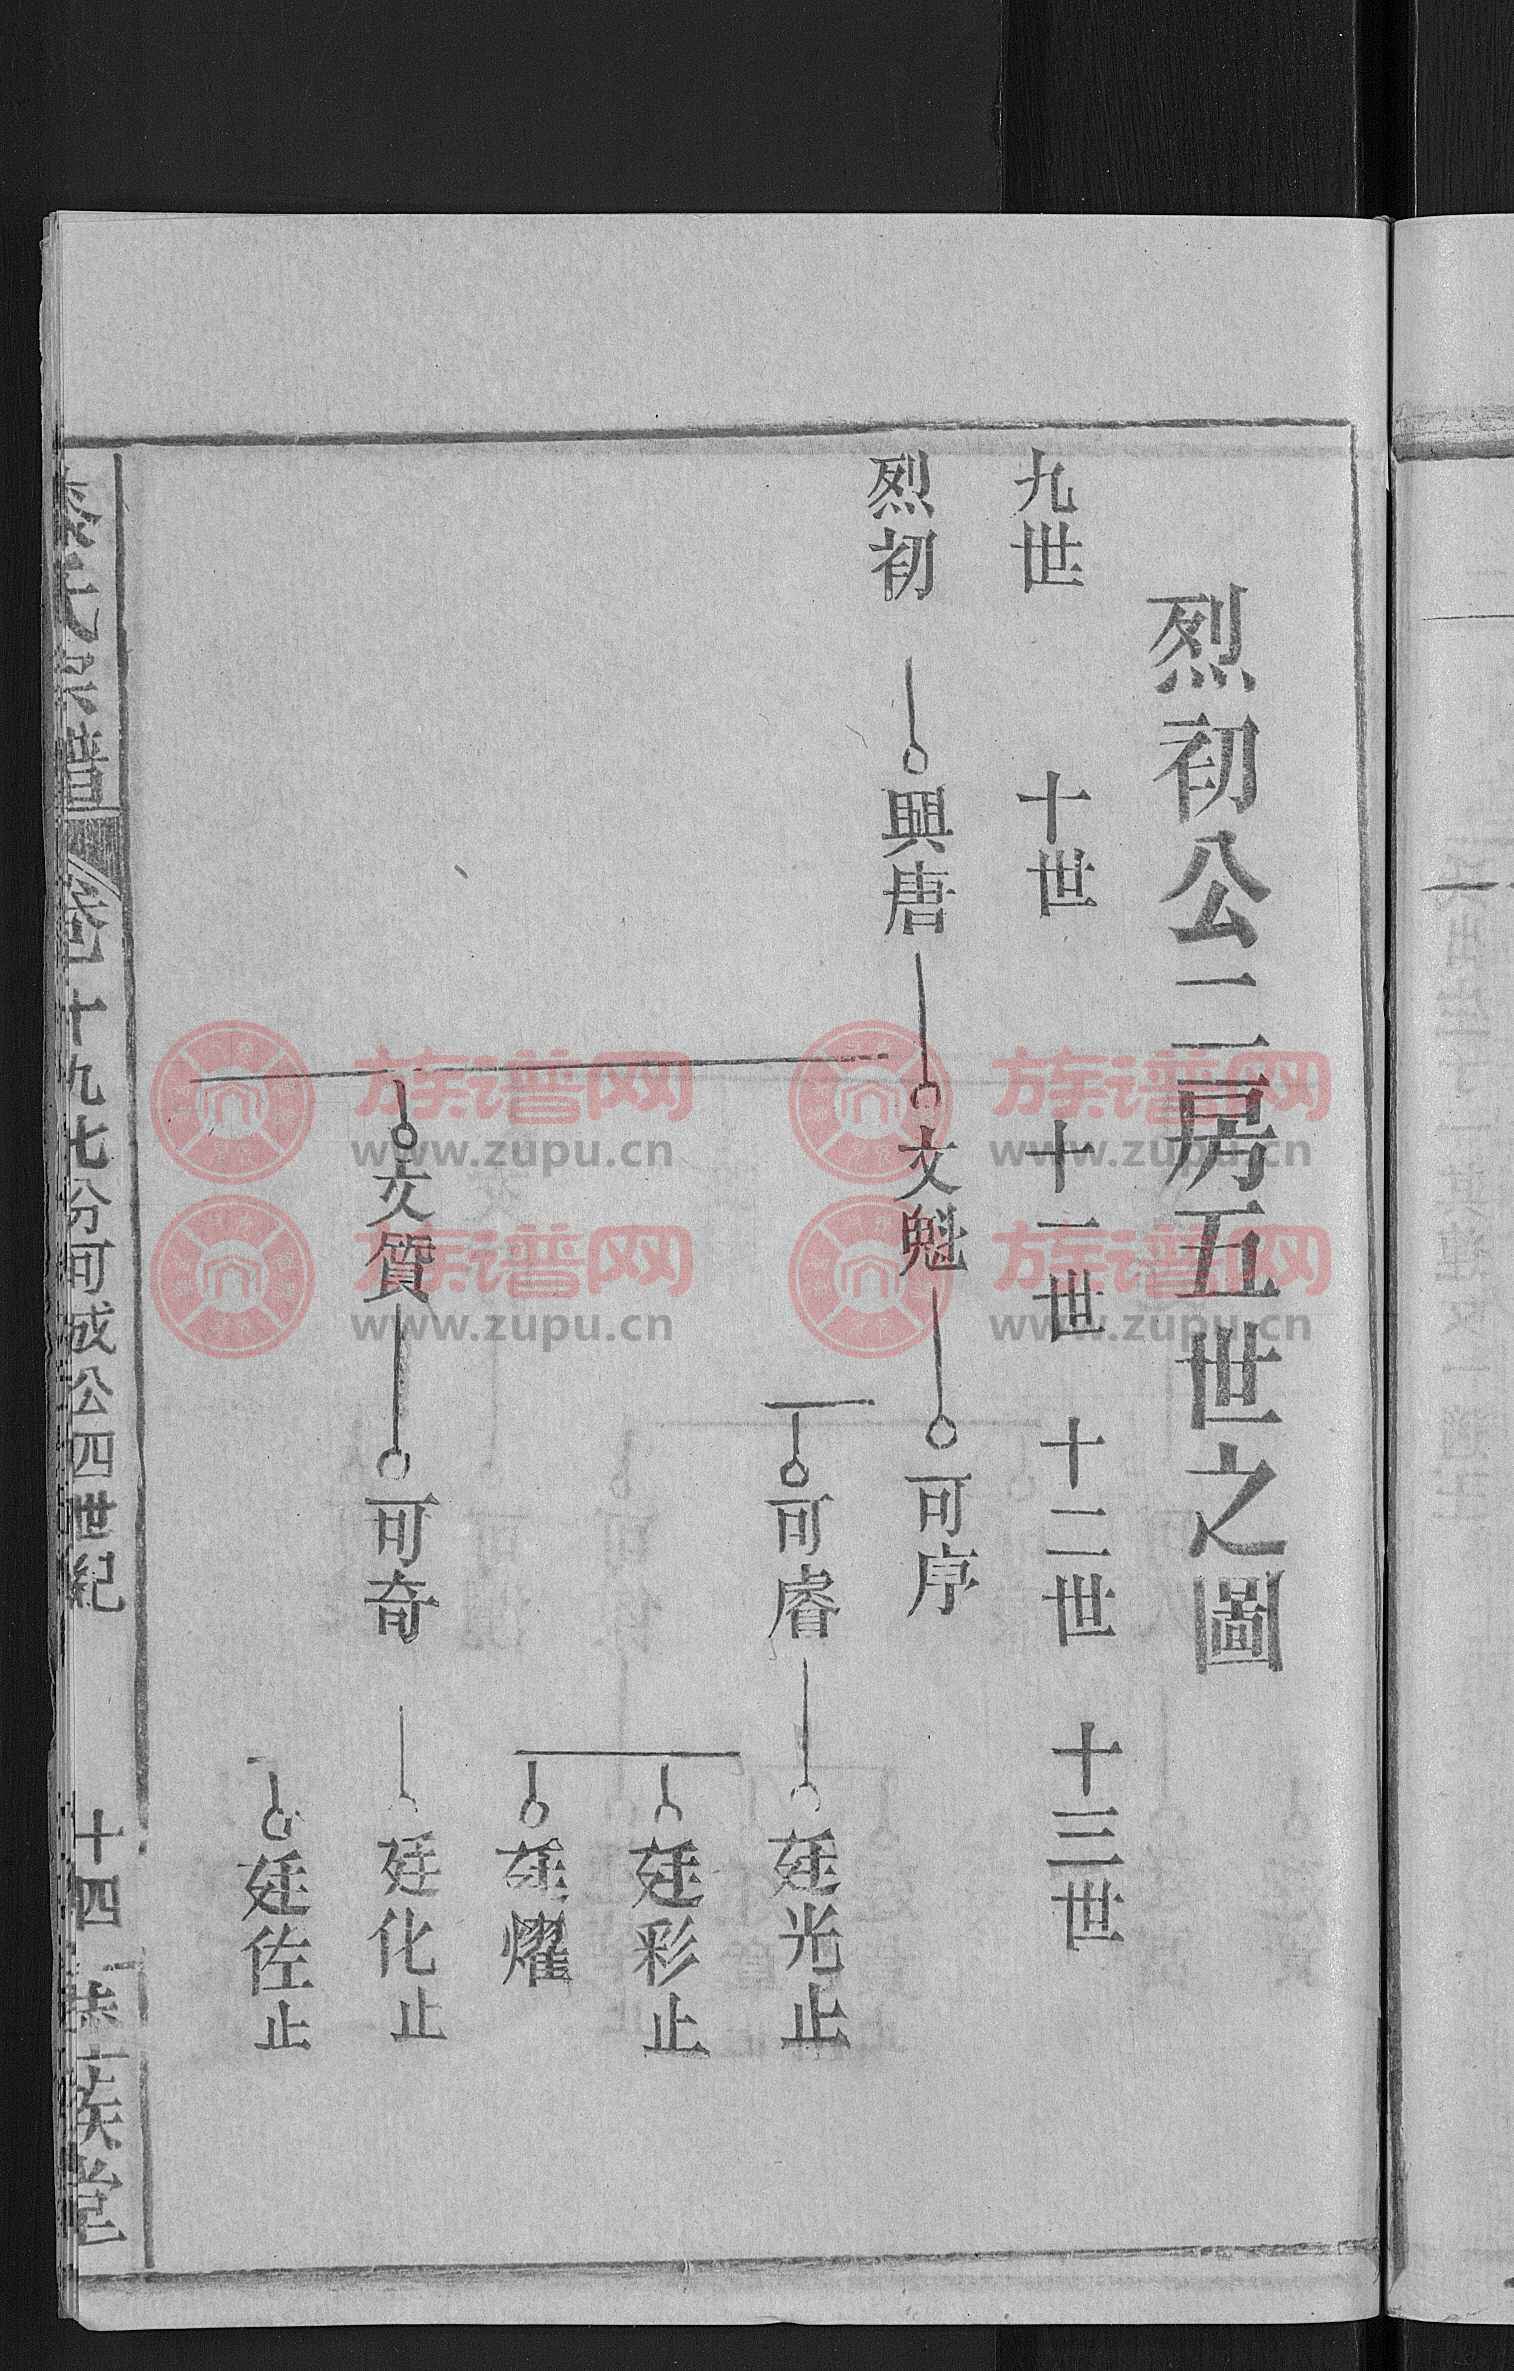 烈初公二房五世之圖
九世
十世
十一世
十二世
十三世
烈初
興唐
文魁
可序
可睿
廷光止
廷彩止
廷耀
文質
可奇
廷化止
廷佐止
氏宗譜
卷十九七分可成公四世紀
十四
族堂
族谱网
www.zupu.cn
族谱网
www.zupu.cn
族谱网
www.zupu.cn
族谱网
www.zupu.cn